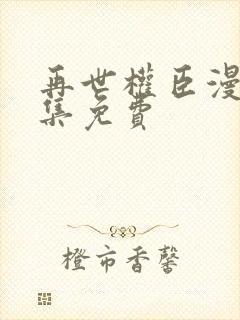 再世權臣漫
集免費
橙市香馨